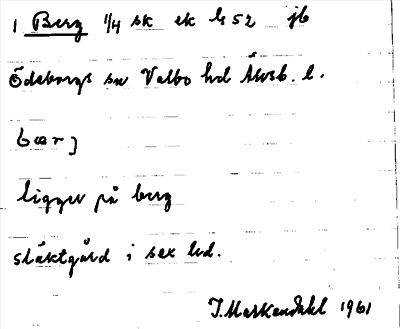 1 Berg 1/4 sk ek b 52 jb
Ödeborgs sn Valbo hd Älvsb. l.
bærj
ligger på berg
släktgård i sex led.
J. Markendahl 1961